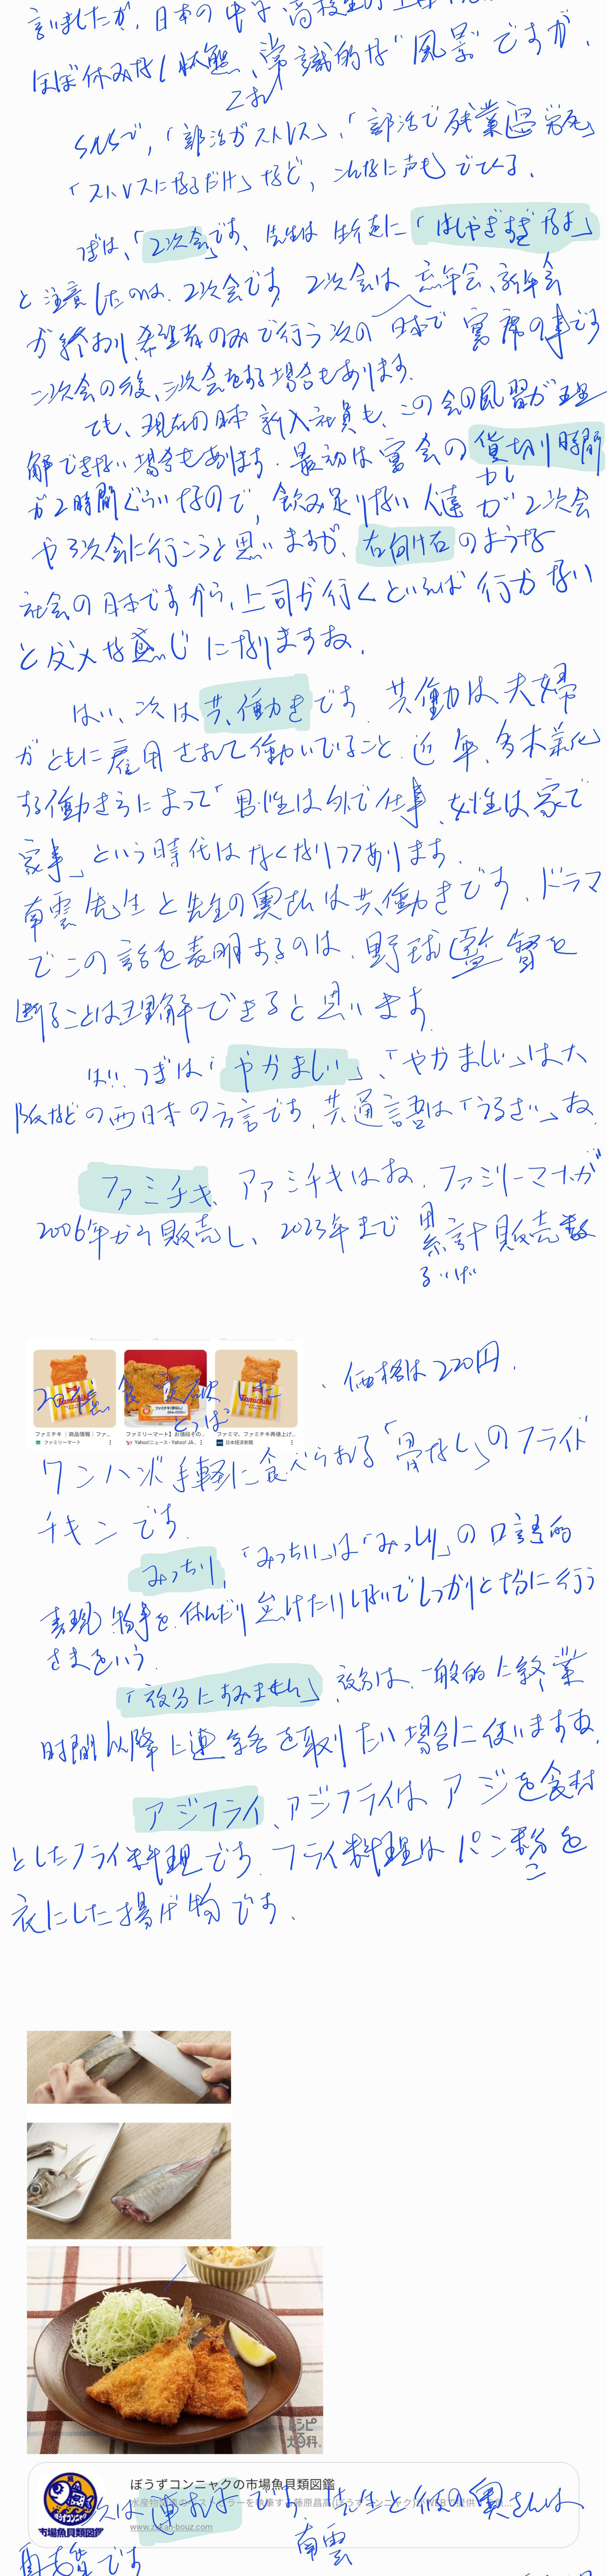 言いましたが、日本の中学、高校生の
ほぼ休みなし状態、常識的な"風景"ですが、
これ
SNSで、「部活がストレス」、「部活で残業過労死」
「ストレスになるだけ」など、こんなに声もでている。
つぎは、「2次会」です、先生は生徒に「はしゃぎすぎるなよ」
と注意したのは、2次会です 2次会は忘年会、新年会
が終わり、希望者のみで行う次の日本で宴席の事です
二次会の後、三次会をする場合もあります。
でも、現在の日本新入社員も、この会の風習が理
解できない場合もあります。最初は宴会の貸切り時間
かし
が2時間ぐらいなので、飲み足りない人達が2次会
や3次会に行こうと思いますが、右向け右のような
社会の日本ですから、上司が行くといえば行かない
とダメな感じになりますね。
はい、次は共働きです。共働は夫婦
がともに雇用されて働いていること、近年、多木業化
する働き方によって「男性は外で仕事、女性は家で
家事」という時代はなくなりつつあります。
南雲先生と先生の奥さんは共働きです。ドラマ
でこの話を表明するのは、野球監督を
断ることは理解できると思います。
はい、つぎは「やかましい」、「やかましい」は大
阪などの西日本の方言です、共通語は「うるさい」ね
ファミチキ、ファミチキはね、ファミリーマートが
2006年から販売し、2023年まで累計販売数
るいけい
ファミチキ ｜商品情報｜ファ...
ファミリーマート
ファミリーマート】お値段その...
Yahoo!ニュース - Yahoo! JA...
ファミマ、ファミチキ再値上げ...
日本経済新聞
20億食突破した
とっぱ
、価格は220円。
ワンハンド手軽に食べられる「骨なし」のフライド
チキンです。
みっちり、「みっちり」は「みっしり」の口語的
表現 物事を休んだり怠けたりしないでしっかりと十分に行う
さまをいう。
「夜分にすみません」、夜分は、一般的に終業
時間以降に連絡を取りたい場合に使いますね。
アジフライ、アジフライはアジを食材
としたフライ料理です。フライ料理はパン粉を
こ
衣にした揚げ物です。
レシピ
大百科
ぼうずコンニャクの市場魚貝類図鑑
www.zukan-bouz.com
市場魚貝類図鑑
次は連れ子です。先生と彼の奥さんは
南雲
再婚です